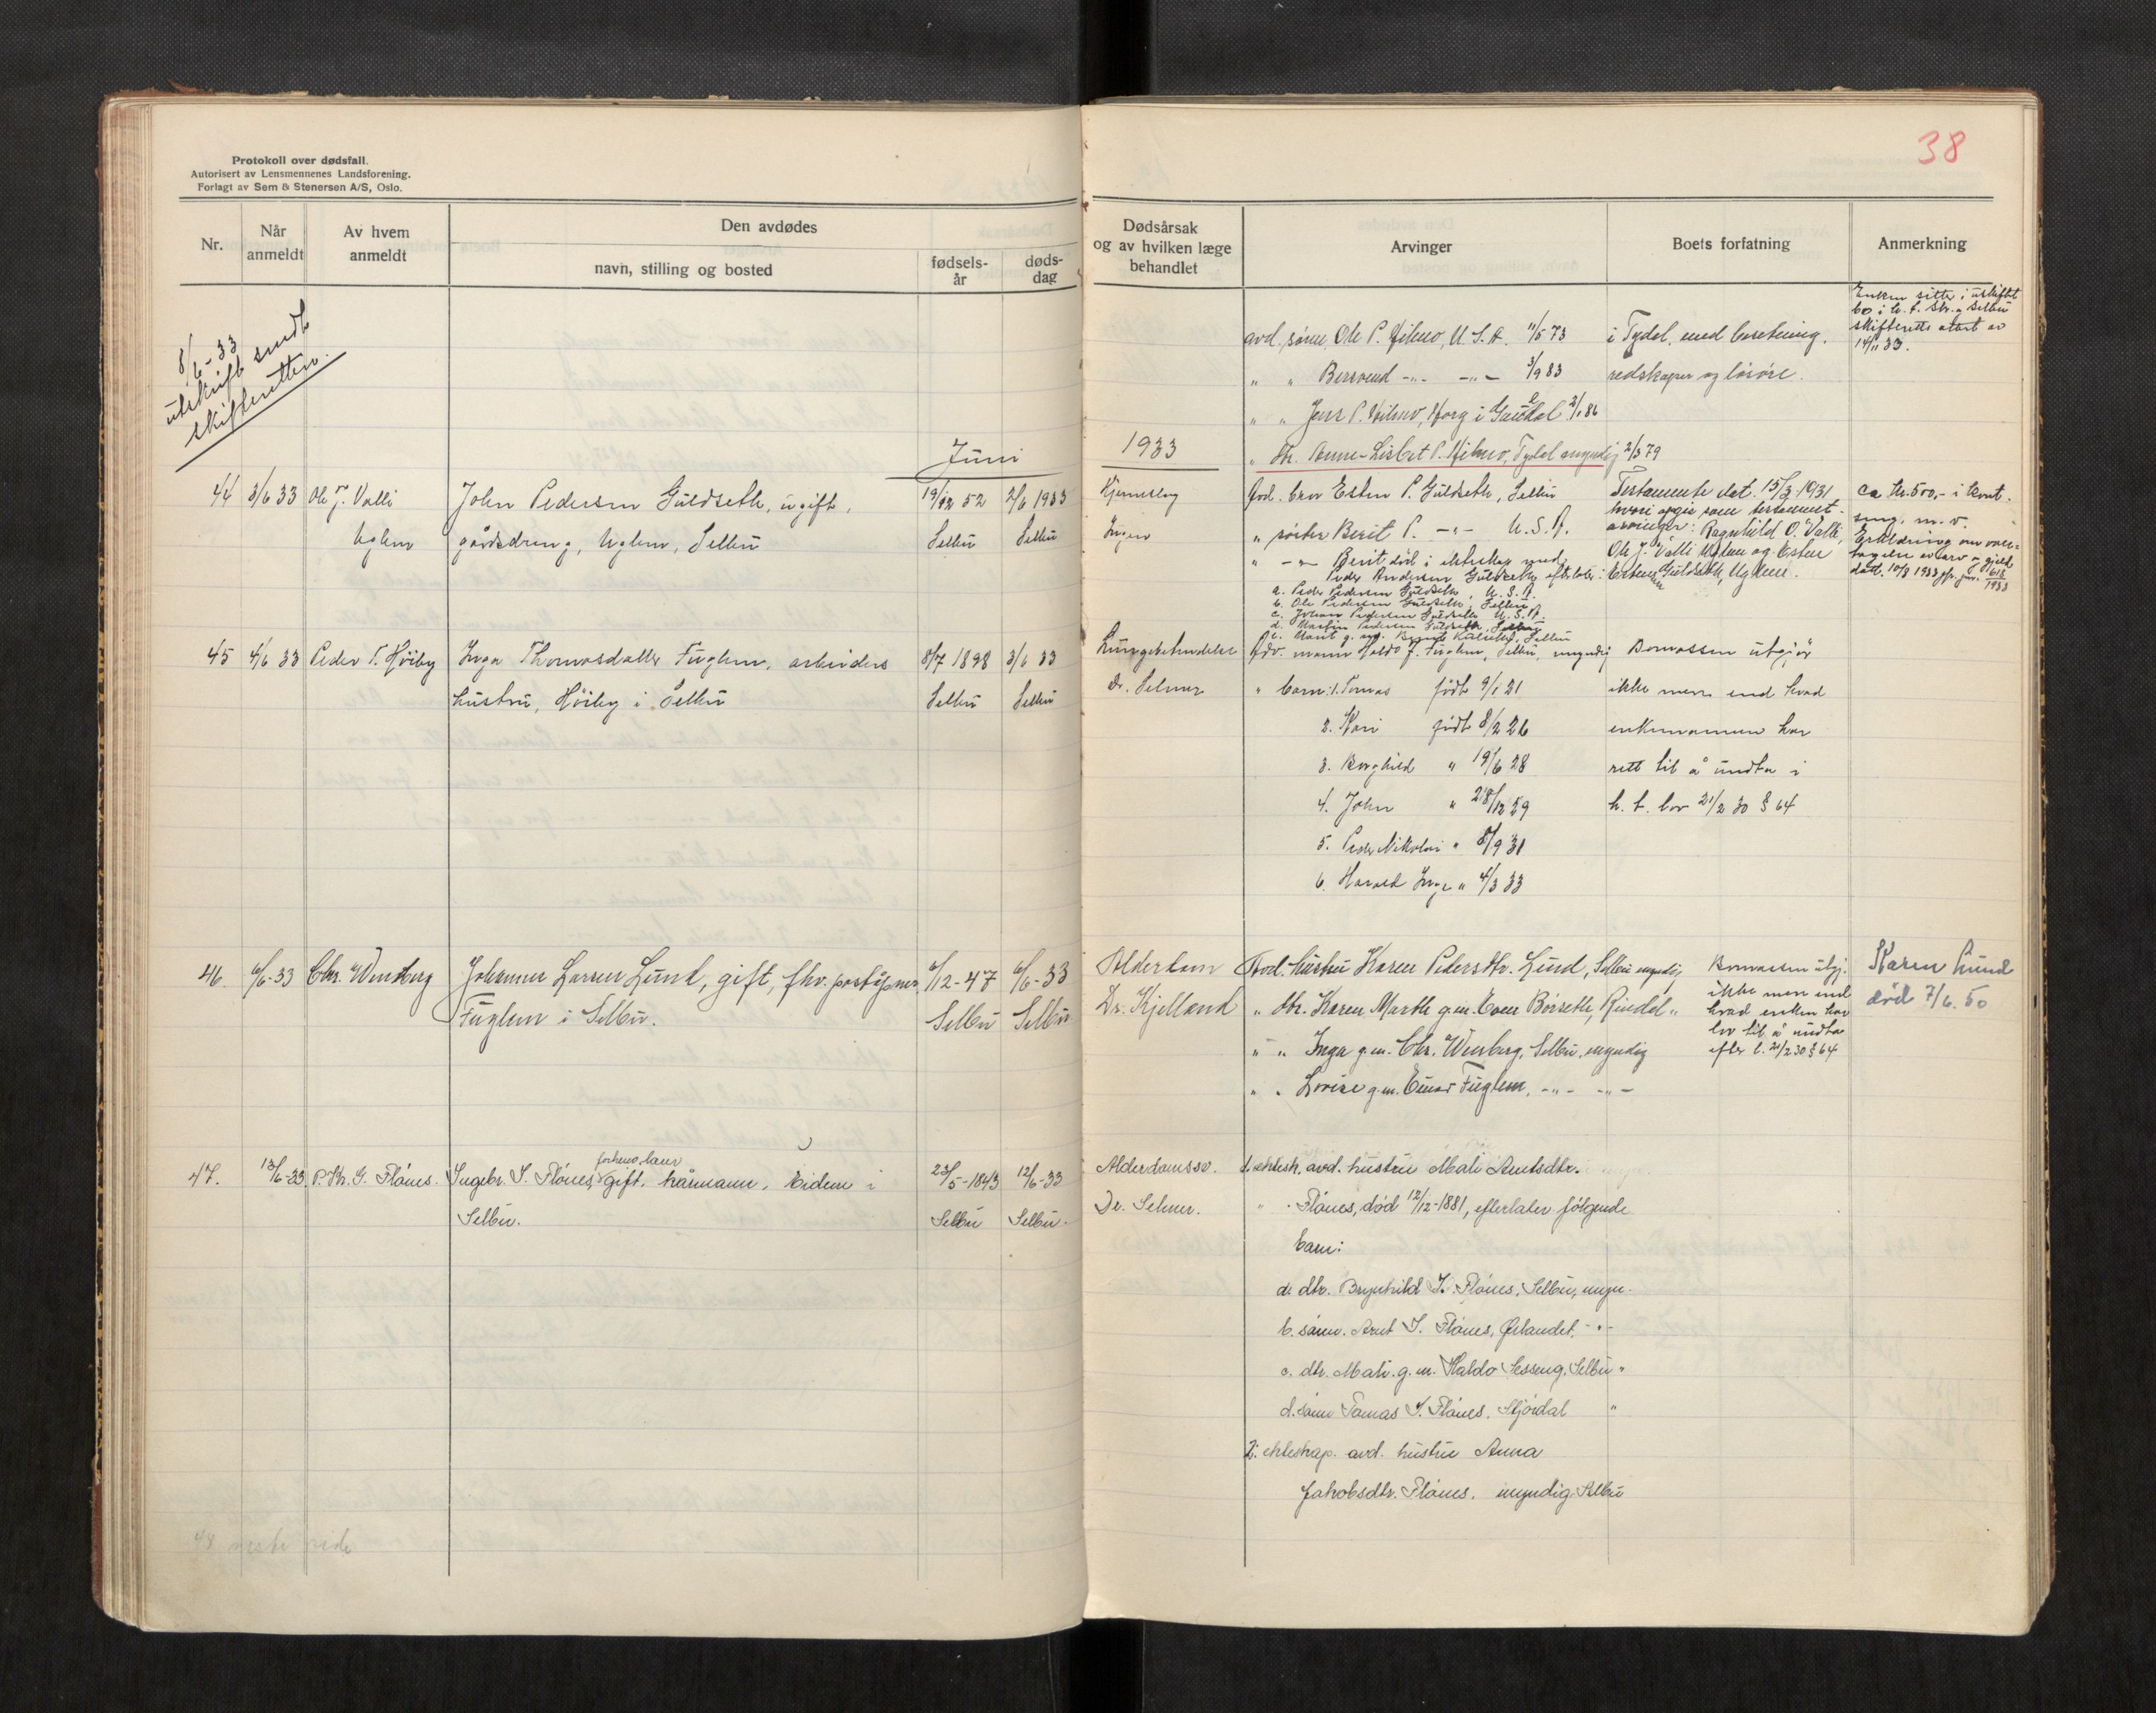 38
Protokoll over dødsfall.
Autorisert av Lensmennenes Landsforening.
Forlagt av Sem & Stenersen A/S, Oslo.
Nr.
Når anmeldt
Av hvem anmeldt
Den avdødes
navn, stilling og bosted
fødsels-år
døds-dag
Dødsårsak og av hvilken læge behandlet
Arvinger
Boets forfatning
Anmerkning
8/6-33
utskrift sendt
skifteretten.
avd. sønn, Ole P. Hilmo, U.S.A. 11/5 73
i Tydal, med besetning.
Enken sitter i uskiftet
bo i h. t. Str. & Selbu
skifteretts attest av
14/11 33.
" " Bersvend -"- -"- 3/9 83
redskaper og løsøre.
" " Jens P. Hilmo, Horg i Gauldal 2/1 86
" dtr. Anne-Lisbet P. Hilmo, Tydal myndig 2/3 79
Juni
1933
44 3/6 33 Ole J. Valli
Uglem
John Pedersen Guldseth, ugift,
gårdsdreng, Uglem, Selbu
19/12 52 2/6 1933
Selbu Selbu
Hjerneslag
Ingen
Avd. bror Esten P. Guldseth, Selbu
" søster Berit P. -"- U.S.A.
" -"- Berit död i ekteskap med
Peder Andersen Guldseth efterlater:
a. Peder Pedersen Guldseth, U.S.A.
b. Ole Pedersen Guldseth, Selbu
c. Johan Pedersen Guldseth U.S.A
d. Martin Pedersen Guldseth, Selbu
e. Marit g. m. Selbu
Testamente dat. 15/3 1931
hvori opgis som testament-
arvinger: Ragnhild O. Valli,
Ole J. Valli Uglem og Esten
Estensen Guldseth, Uglem.
ca kr. 500,- i kont.
m. v.
Erklæring om over-
tagelse av arv og gjeld
datt. 10/8 1933 jfr. jnr. 618/1933
45 4/6 33 Peder T. Høiby
Inga Thomasdatter Fuglem, arbeiders
hustru, Høiby i Selbu
8/7 1898 3/6 33
Selbu Selbu
Lungebetendelse
Dr. Selmer
Adv. mann Haldo J. Fuglem, Selbu, myndig
" barn: 1. Tomas født 9/1 21
2. Kari født 8/2 26
3. Borghild " 19/6 28
4. John " 28/12 29
5. Peder Nikolai " 8/9 31
6. Harald Inge " 4/3 33
Bomassen utgjör
ikke mere end hvad
enkemannen har
rett til å undta i
h. t. lov 21/2 30 § 64
46. 6/6-33 Chr. Wenberg
Johannes Larsen Lund, gift, fhv. poståpner,
Fuglem i Selbu.
6/12-47 6/6-33
Selbu Selbu
Alderdom
Dr. Kjelland
Avd. hustru Karen Pedersdtr. Lund, Selbu myndig,
" dtr. Karen Marth g.m. Even Børseth, Rindal "
" " Inga g.m. Chr. Wenberg, Selbu, myndig
" " Lovise g.m. Einar Fuglem, -"- -"-
Bomassen utgj.
ikke mere end
hvad enken har
lov til å undta
efter l. 21/2 30 § 64
Karen Lund
död 7/6. 50
47. 13/6-33 P. Kr. G. Flånes.
Ingebr. T. Flønes, gift, kårmann, Eidem i
Selbu.
23/5-1843 12/6-33
Selbu Selbu.
Alderdomssv.
Dr. Selmer.
1. ektesk. avd. hustru Mali Arntsdtr.
" Flånes, død 12/12-1881, efterlater følgende
barn:
a. dtr. Brynhild I. Flønes, Selbu, myn.
b. sønn. Arnt I. Flønes, Ørlandet, -"-
c. dtr. Mali. g. m. Haldo Sesseng, Selbu "
d. sønn Tomas I. Flønes, Stjørdal "
2. ekteskap. avd. hustru Anna
Jakobsdtr. Flønes. myndig Selbu
48 neste side